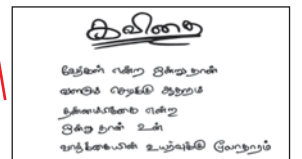 கவிதை
வேர்கள் என்ற ஒன்று தான்
வளரும் செடிக்கு ஆதாரம்
தன்னம்பிக்கை என்ற
ஒன்று தான் உன்
வாழ்க்கையின் உயர்வுக்கு வேராதாரம்